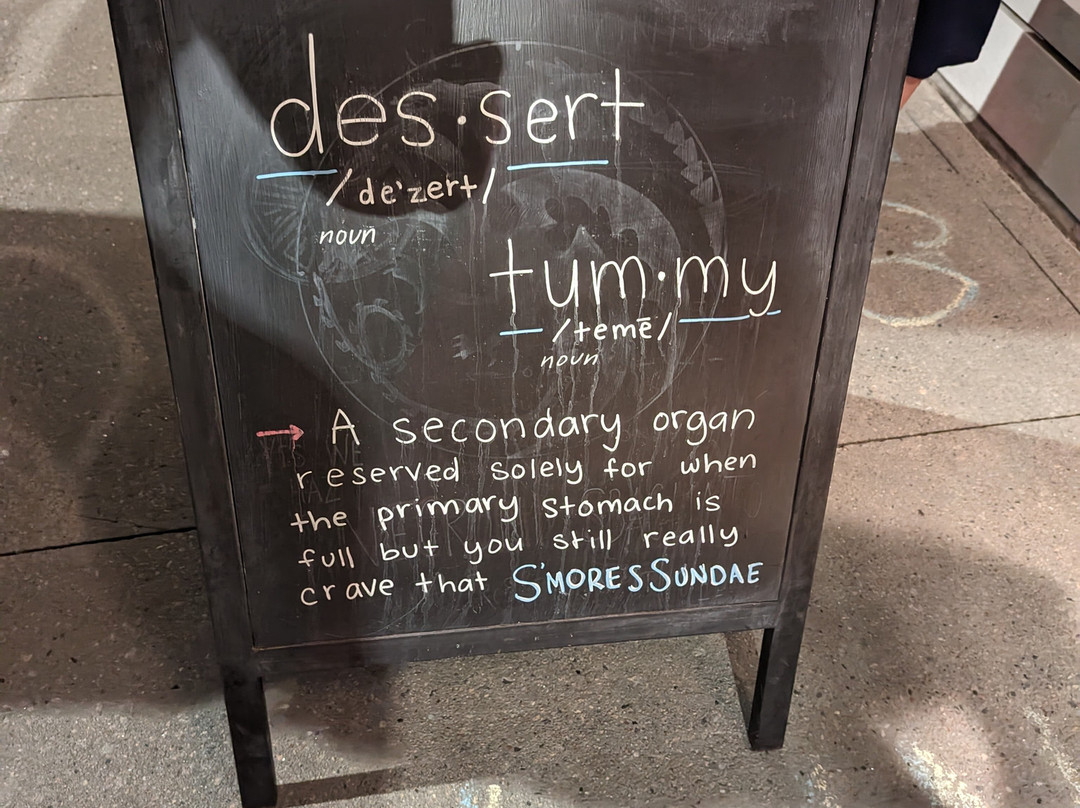 des·sert
/de'zert/
noun
tum·my
/temē/
noun
→ A secondary organ
reserved solely for when
the primary stomach is
full but you still really
crave that S'MORES SUNDAE